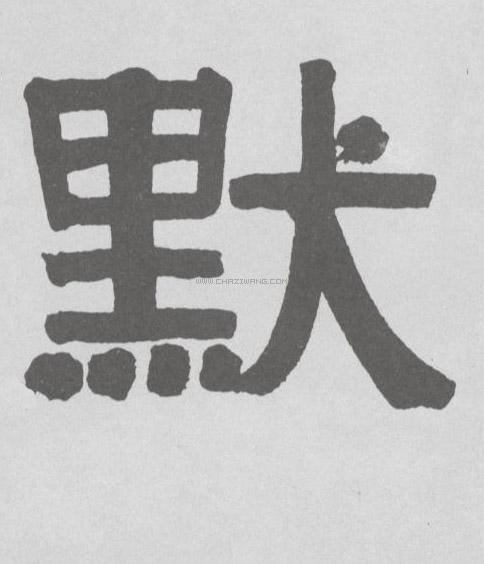 默
WWW.CHAZIWANG.COM